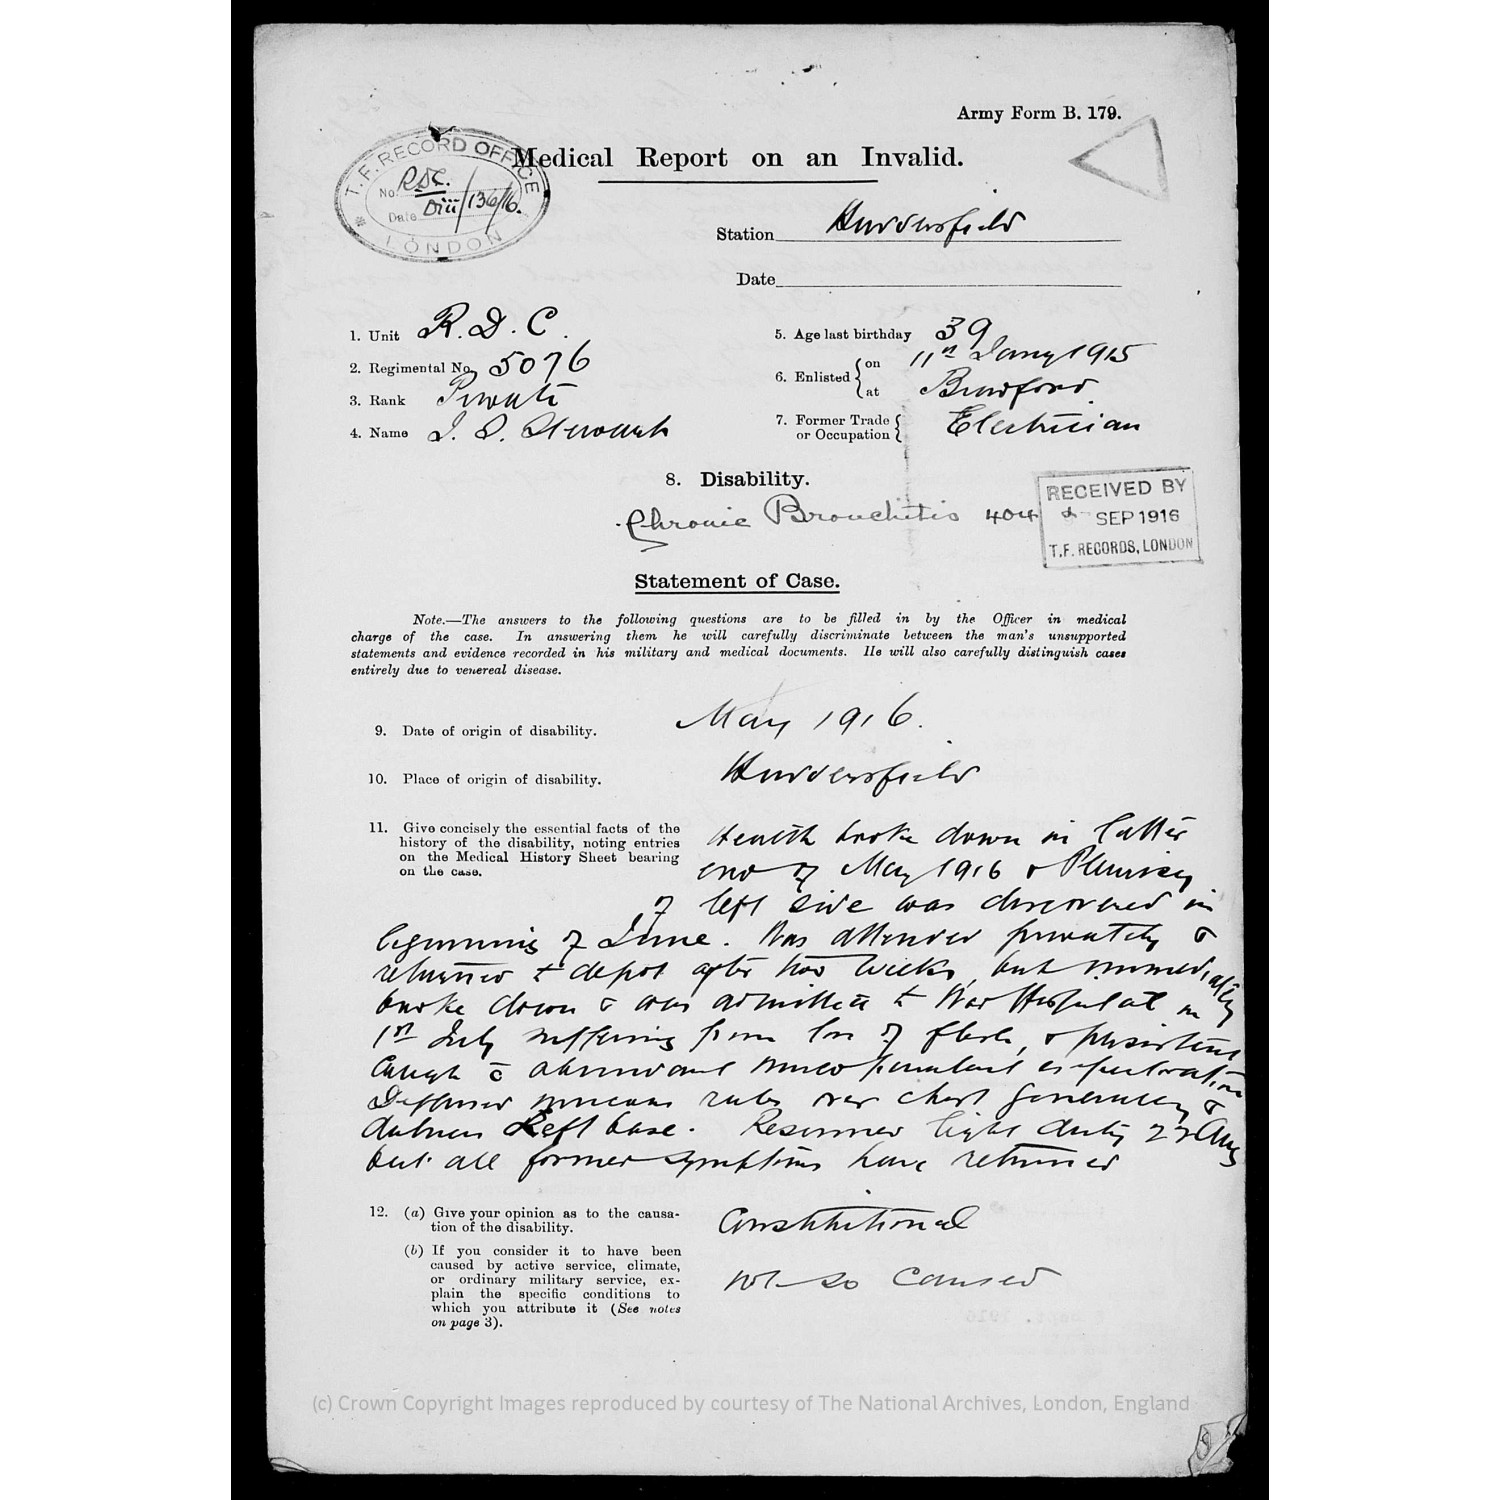 Army Form B. 179.
T.F. RECORD OFFICE
No. RDC.
Date Diii/136/16.
LONDON
Medical Report on an Invalid.
Station Huddersfield
Date
1. Unit R.D.C.
2. Regimental No. 5076
3. Rank Private
4. Name J. S. Stewart
5. Age last birthday 39
6. Enlisted { on 11th Jany 1915
at Bradford
7. Former Trade or Occupation { Electrician
8. Disability.
Chronic Bronchitis 404
RECEIVED BY
SEP 1916
T.F. RECORDS, LONDON
Statement of Case.
Note.—The answers to the following questions are to be filled in by the Officer in medical
charge of the case. In answering them he will carefully discriminate between the man's unsupported
statements and evidence recorded in his military and medical documents. He will also carefully distinguish cases
entirely due to venereal disease.
9. Date of origin of disability. May 1916.
10. Place of origin of disability. Huddersfield
11. Give concisely the essential facts of the
history of the disability, noting entries
on the Medical History Sheet bearing
on the case.
Health broke down in latter
end of May 1916 & Pleurisy
of left side was discovered in
beginning of June. Was attended privately &
returned to depot after two weeks, but immediately
broke down & was admitted to War Hospital on
1st July suffering from loss of flesh, & persistent
Cough c̄ abundant mucopurulent expectoration
Diffused mucous rales over chest generally &
dulness Left base. Resumed light duty 22 Aug
but all former symptoms have returned
12. (a) Give your opinion as to the causa-
tion of the disability.
Constitutional
(b) If you consider it to have been
caused by active service, climate,
or ordinary military service, ex-
plain the specific conditions to
which you attribute it (See notes
on page 3).
not so caused
(c) Crown Copyright Images reproduced by courtesy of The National Archives, London, England